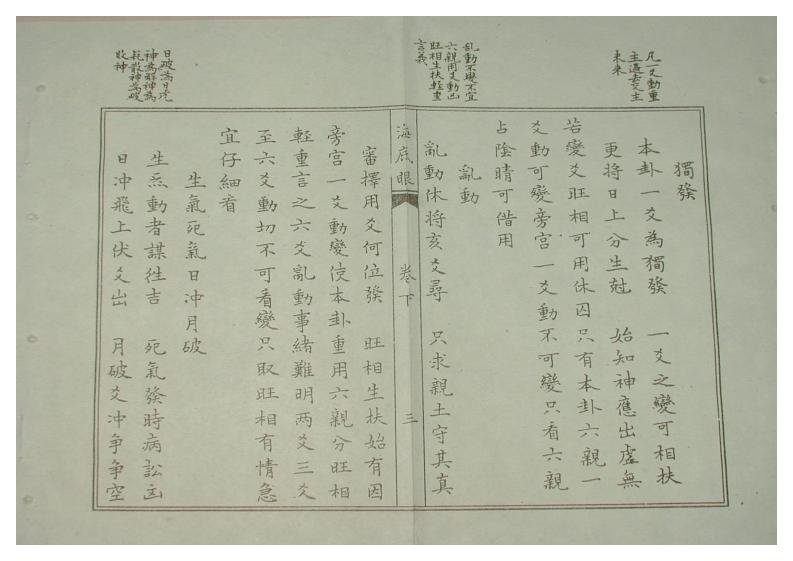 凡一爻動重
主過去交主
未來
獨發
本卦一爻為獨發　一爻之變可相扶
更將日上分生尅　始知神應出虛無
若變爻旺相可用休囚只有本卦六親一
爻動可變旁宮一爻動不可變只看六親
占陰晴可借用
亂動
亂動休將亥爻尋　只求親土守其真
乱動不與不宜
六親用爻動出
旺相生扶輕重
言義
海底眼　卷下　三
審擇用爻何位發　旺相生扶始有因
旁宮一爻動變使本卦重用六親分旺相
輕重言之六爻亂動事緒難明两爻三爻
至六爻動切不可看變只取旺相有情急
宜仔細看
生氣死氣日冲月破
生炁動者謀徃吉　死氣發時病訟凶
日冲飛上伏爻出　月破爻冲争争空
日破為日
神為解神為
耗散神為破
敗神